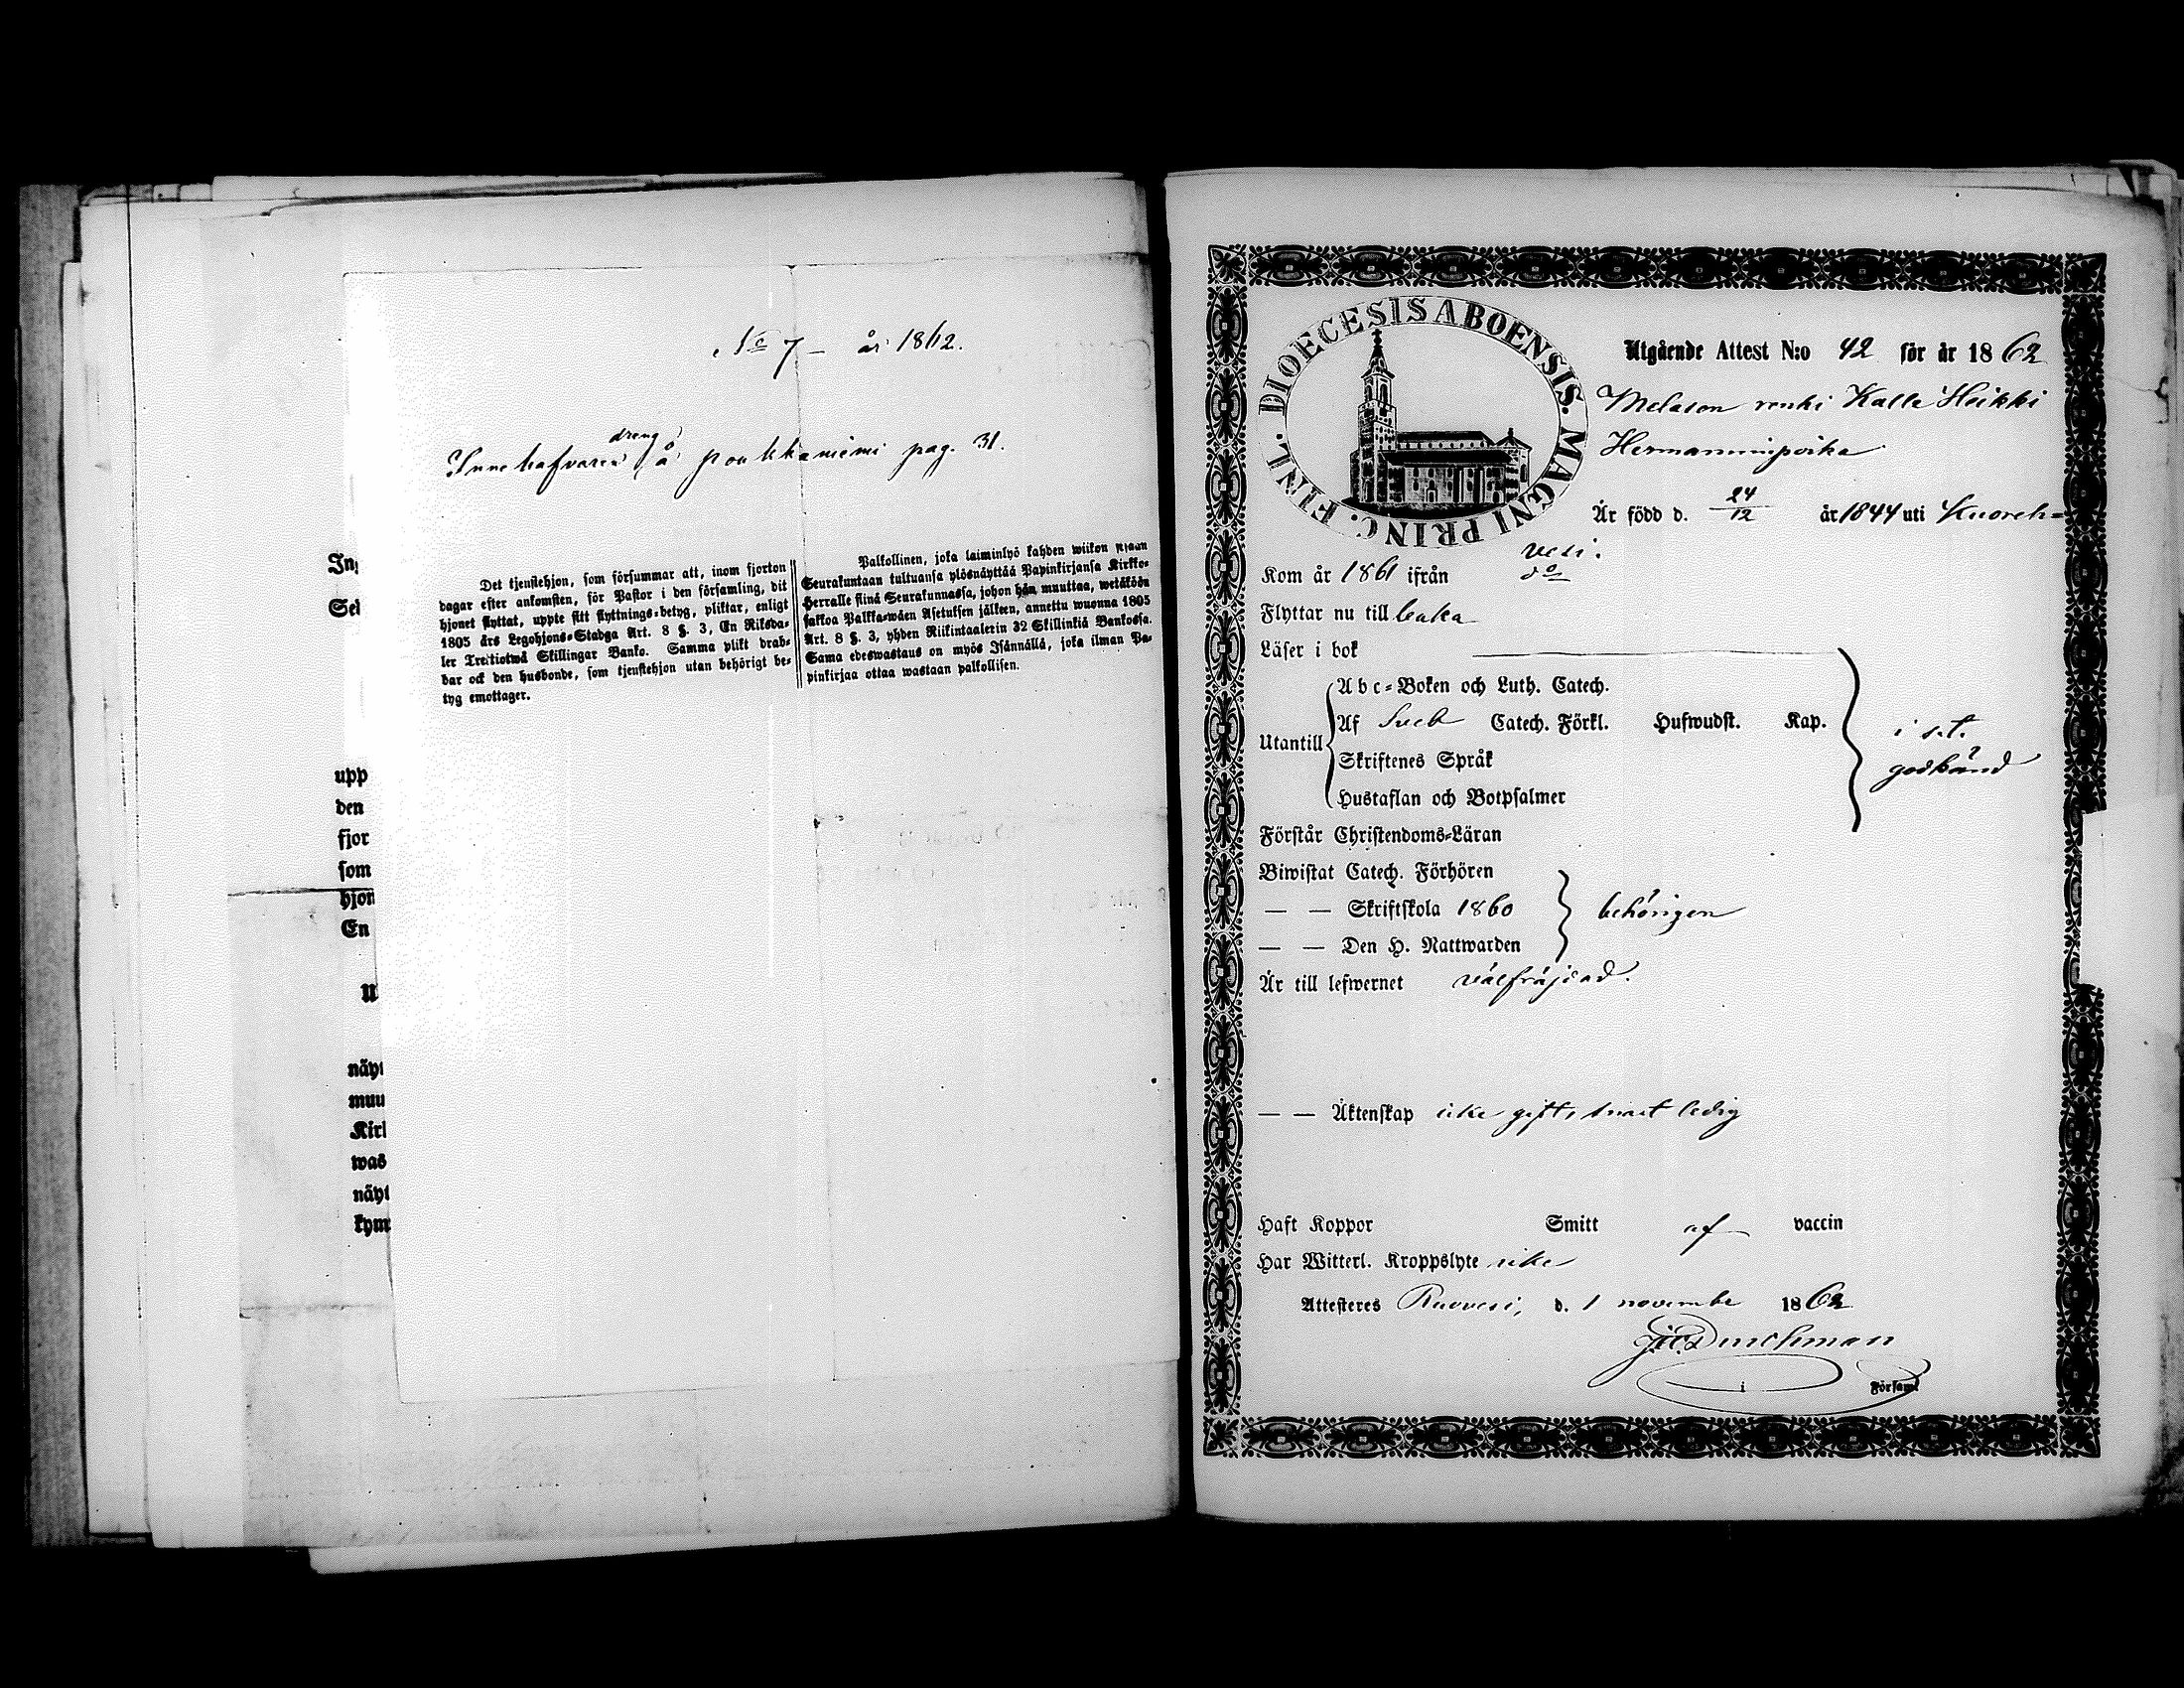 No 7 – år 1862.
dreng
Innehafvaren å poukkaniemi pag. 31.
In
Sel
Det tjenstehjon, som försummar att, inom fjorton
dagar efter ankomsten, för Pastor i den församling, dit
hjonet flyttat, uppte sitt flyttnings-betyg, pliktar, enligt
1805 års Legohjons-Stadga Art. 8 §. 3, En Riksda-
ler Trettiotwå Skillingar Banko. Samma plikt drab-
bar ock den husbonde, som tjenstehjon utan behörigt be-
tyg emottager.
Palkollinen, joka laiminlyö kahden wiikon sisään
Seurakuntaan tultuansa ylösnäyttää Papinkirjansa Kirkko-
Herralle siinä Seurakunnassa, johon hän muuttaa, wetäköön
sakkoa Palkka-wäen Asetuksen jälkeen, annettu wuonna 1805
Art. 8 §. 3, yhden Riikintaalerin 32 Skillinkiä Bankossa.
Sama edeswastaus on myös Isännällä, joka ilman Pa-
pinkirjaa ottaa wastaan palkollisen.
upp
den
fjor
som
hjon
En
U
näyt
muu
Kirk
was
näyt
kym
DIOECESIS ABOENSIS. MAGNI PRINC. FINL.
Utgående Attest N:o 42 för år 1862
Melason renki Kalle Heikki
Hermanninpoika
Är född d. 24/12 år 1844 uti Kuoreh=
vesi.
Kom år 1861 ifrån do
Flyttar nu till
Läser i bok
Abc-Boken och Luth. Catech.
Utantill
Af Sveb Catech. Förkl. Hufwudst. Kap.
Skriftenes Språk
Hustaflan och Botpsalmer
i s.t.
godkänd
Förstår Christendoms-Läran
Biwistat Catech. Förhören
— — Skriftskola 1860
— — Den H. Nattwarden
behörigen
Är till lefwernet välfräjdad.
— — Äktenskap icke gift, snart ledig
Haft Koppor Smitt af vaccin
Har Witterl. Kroppslyte icke
Attesteres Ruovesi, d. 1 november 1862
i Församl